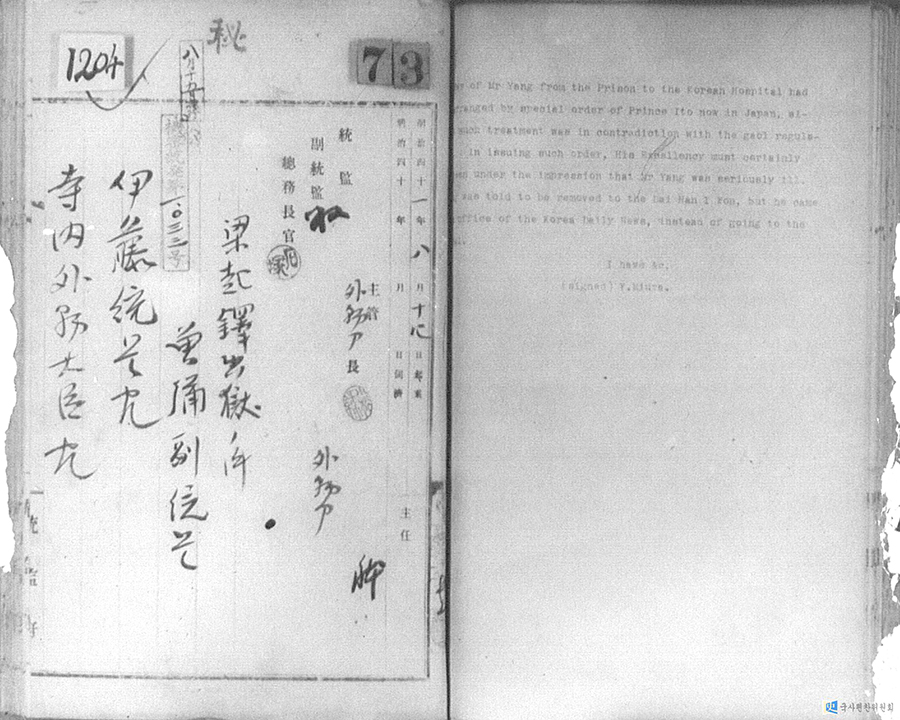 73
1204
秘
明治四十一年八月十七日起案
明治四十 年 月 日
主任
統監
副統監
總務長官
主管
外務部長
外務部
梁起鐸出獄ノ件
曾禰副統監
八月十五日
一〇三二号
伊藤統監宛
寺内外務大臣宛
of Mr Yang from the Prison to the Korean Hospital had
by special order of Prince Ito now in Japan, al-
such treatment was in contradiction with the gaol regula-
In issuing such order, His Excellency must certainly
under the impression that Mr Yang was seriously ill.
was told to be removed to the Dai Han I Yon, but he came
office of the Korea Daily News, instead of going to the
I have &c.
(signed) Y.Miura.
국사편찬위원회